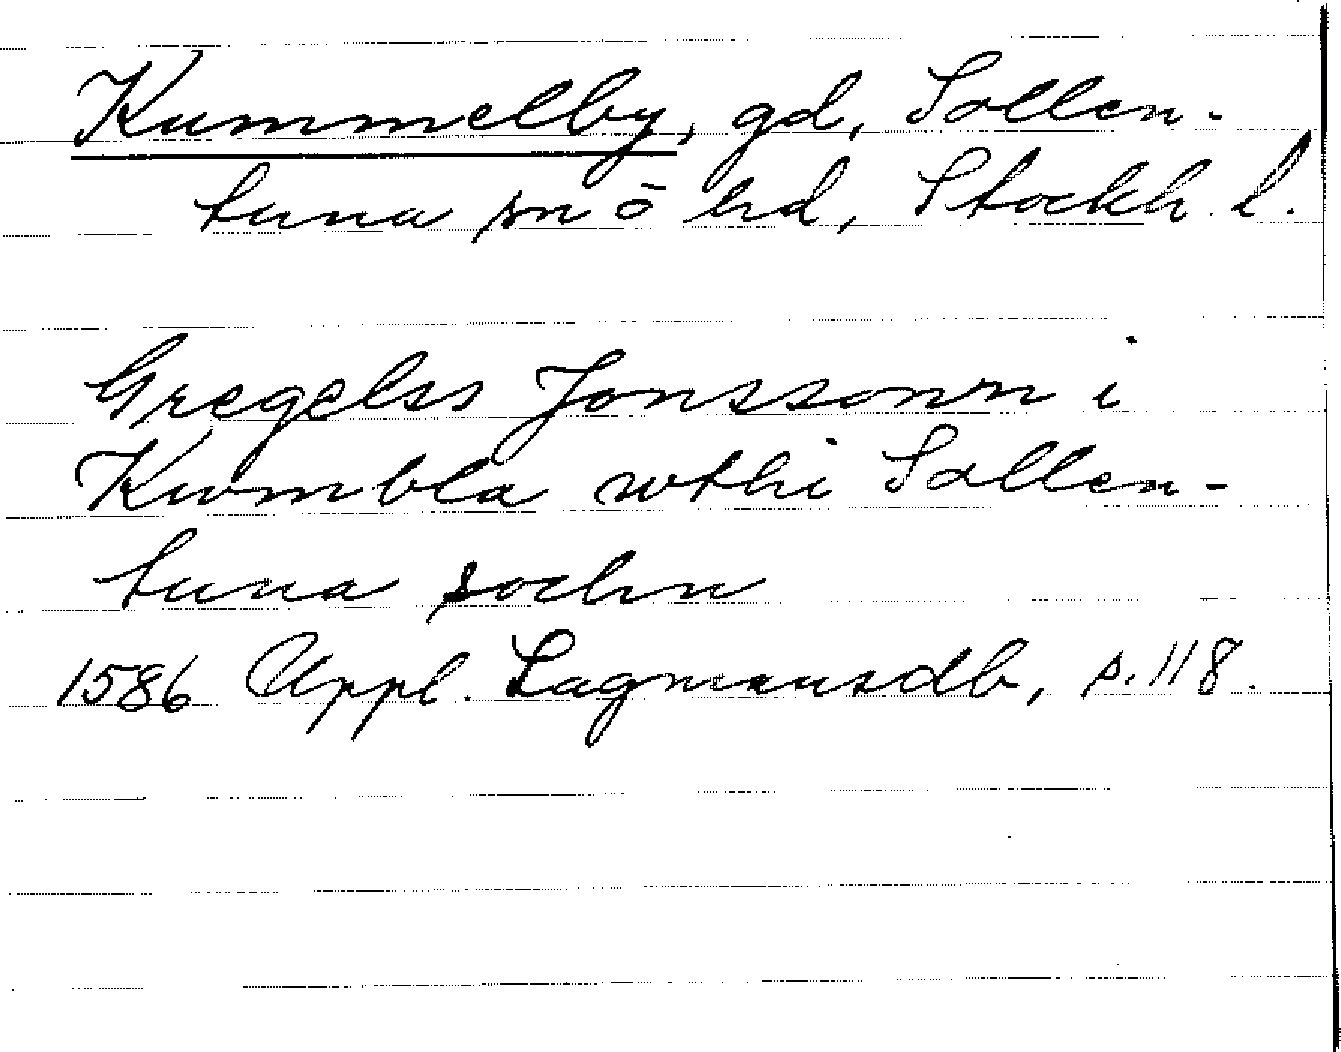 Kummelby, gd, Sollen-
tuna sn ō hd, Stockh. l.
Gregelss Jonssonn i
Kwmbla wthi Sollen-
tuna sochn
1586 Uppl. Lagmansdb, s. 118.